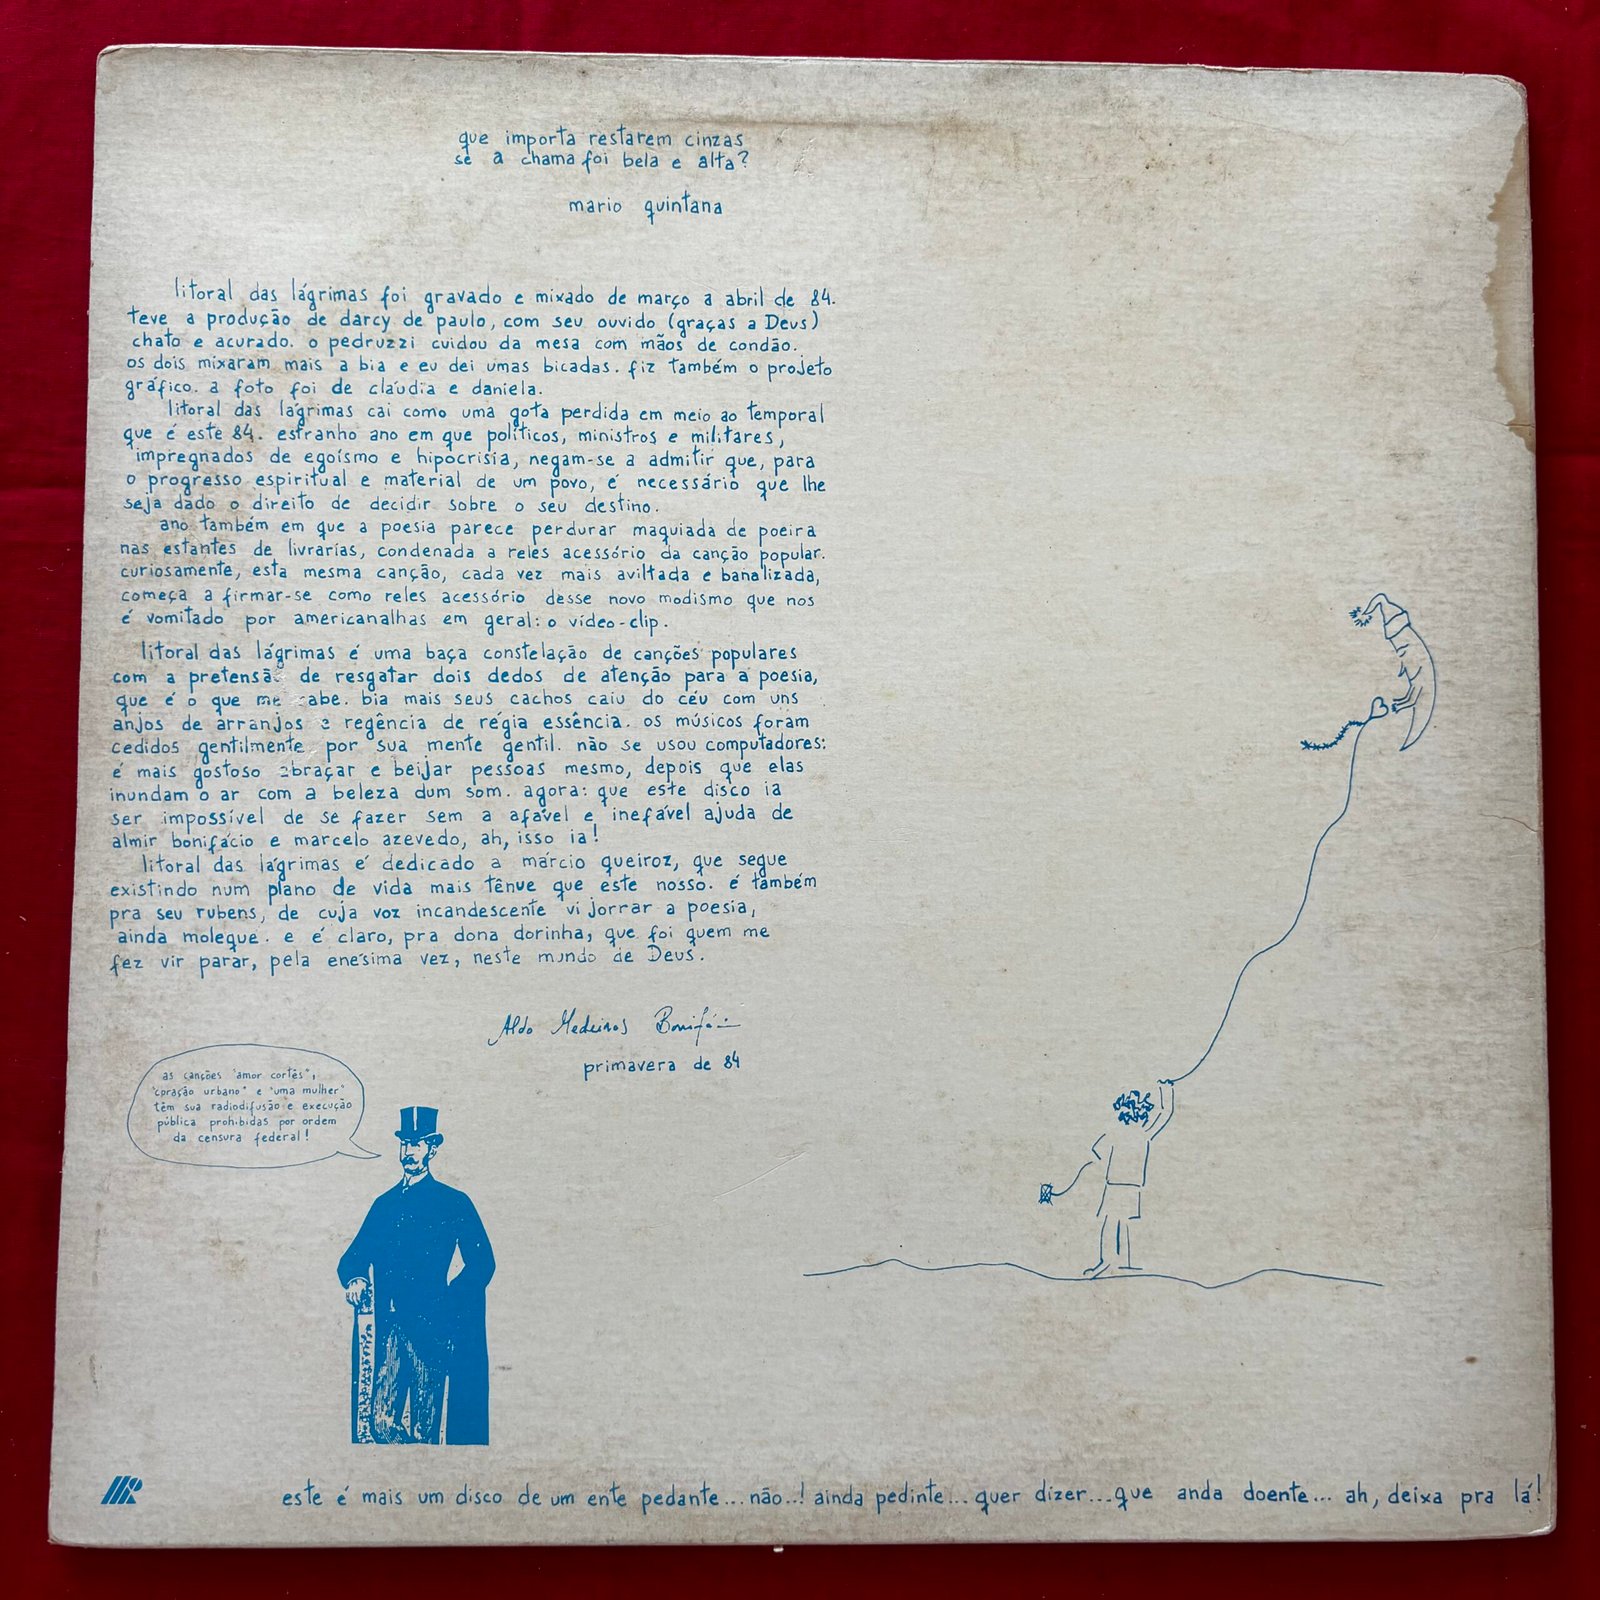 que importa restarem cinzas
se a chama foi bela e alta?
mario quintana
litoral das lágrimas foi gravado e mixado de março a abril de 84.
teve a produção de darcy de paulo, com seu ouvido (graças a Deus)
chato e acurado. o pedruzzi cuidou da mesa com mãos de condão.
os dois mixaram mais a bia e eu dei umas bicadas. fiz também o projeto
gráfico. a foto foi de cláudia e daniela.
litoral das lágrimas cai como uma gota perdida em meio ao temporal
que é este 84. estranho ano em que políticos, ministros e militares,
impregnados de egoísmo e hipocrisia, negam-se a admitir que, para
o progresso espiritual e material de um povo, é necessário que lhe
seja dado o direito de decidir sobre o seu destino.
ano também em que a poesia parece perdurar maquiada de poeira
nas estantes de livrarias, condenada a reles acessório da canção popular.
curiosamente, esta mesma canção, cada vez mais aviltada e banalizada,
começa a firmar-se como reles acessório desse novo modismo que nos
é vomitado por americanalhas em geral: o vídeo-clip.
litoral das lágrimas é uma baça constelação de canções populares
com a pretensão de resgatar dois dedos de atenção para a poesia,
que é o que me cabe. bia mais seus cachos caiu do céu com uns
anjos de arranjos e regência de régia essência. os músicos foram
cedidos gentilmente por sua mente gentil. não se usou computadores:
é mais gostoso abraçar e beijar pessoas mesmo, depois que elas
inundam o ar com a beleza dum som. agora: que este disco ia
ser impossível de se fazer sem a afável e inefável ajuda de
almir bonifácio e marcelo azevedo, ah, isso ia!
litoral das lágrimas é dedicado a márcio queiroz, que segue
existindo num plano de vida mais tênue que este nosso. é também
pra seu rubens, de cuja voz incandescente vi jorrar a poesia,
ainda moleque. e é claro, pra dona dorinha, que foi quem me
fez vir parar, pela enésima vez, neste mundo de Deus.
Aldo Medeiros Bonifácio
primavera de 84
as canções "amor cortês",
"coração urbano" e "uma mulher"
têm sua radiodifusão e execução
pública prohibidas por ordem
da censura federal!
este é mais um disco de um ente pedante... não..! ainda pedinte... quer dizer... que anda doente... ah, deixa pra lá!